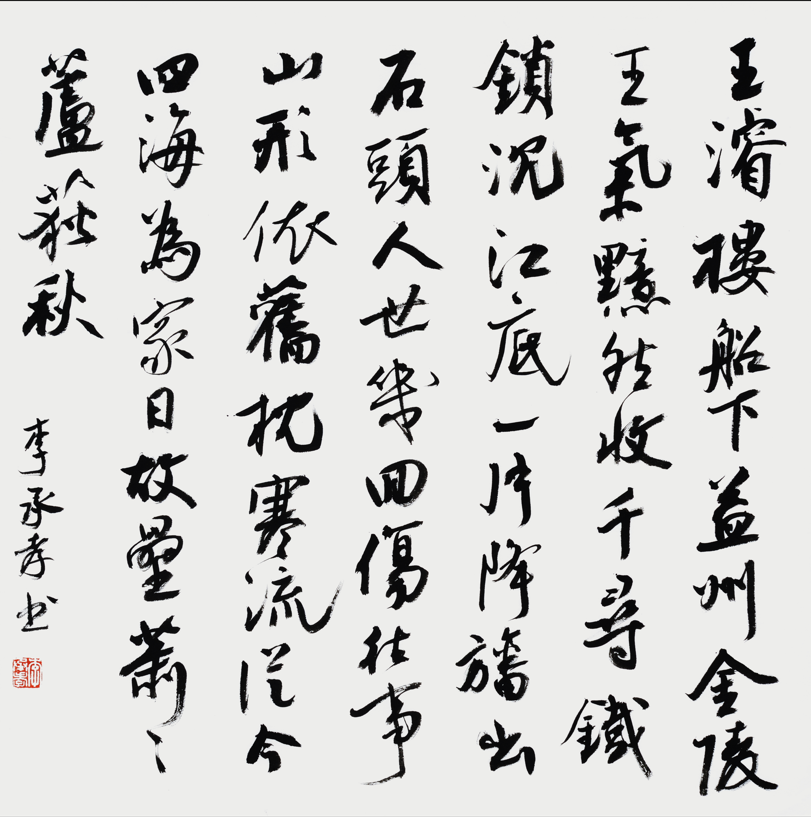 王濬樓船下益州金陵
王氣黯然收千尋鐵
鎖沉江底一片降旛出
石頭人世幾囬傷往事
山形依舊枕寒流從今
四海為家日故壘蕭〻
蘆荻秋
李承孝书